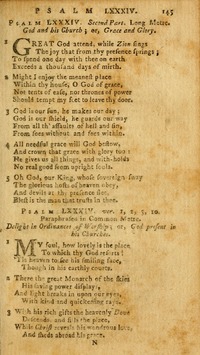 PSALM LXXXIV. 145
PSALM LXXXIV. Second Part. Long Metre.
God and his Church; or, Grace and Glory.
1 GREAT God attend, while Zion sings
The joy that from thy presence springs;
To spend one day with thee on earth
Exceeds a thousand days of mirth.
2 Might I enjoy the meanest place
Within thy house, O God of grace,
Not tents of ease, nor thrones of power
Should tempt my feet to leave thy door.
3 God is our sun, he makes our day;
God is our shield, he guards our way
From all th' assaults of hell and sin,
From foes without and foes within.
4 All needful grace will God bestow,
And crown that grace with glory too:
He gives us all things, and with-holds
No real good from upright souls.
5 Oh God, our King, whose sovereign sway
The glorious hosts of heaven obey,
And devils at thy presence flee,
Blest is the man that trusts in thee.
PSALM LXXXIV. ver. 1, 10.
Paraphrased in Common Metre.
Delight in Ordinances of Worship; or, God present in
his Churches.
1 MY soul, how lovely is the place
To which thy God resorts!
'Tis heaven to see his smiling face,
Though in his earthly courts.
2 There the great Monarch of the skies
His saving power displays;
And light breaks in upon our eyes,
With kind and quickening rays.
3 With his rich gifts the heavenly Dove
Descends and fills the place,
While Christ reveals his wondrous love,
And sheds abroad his grace.
N